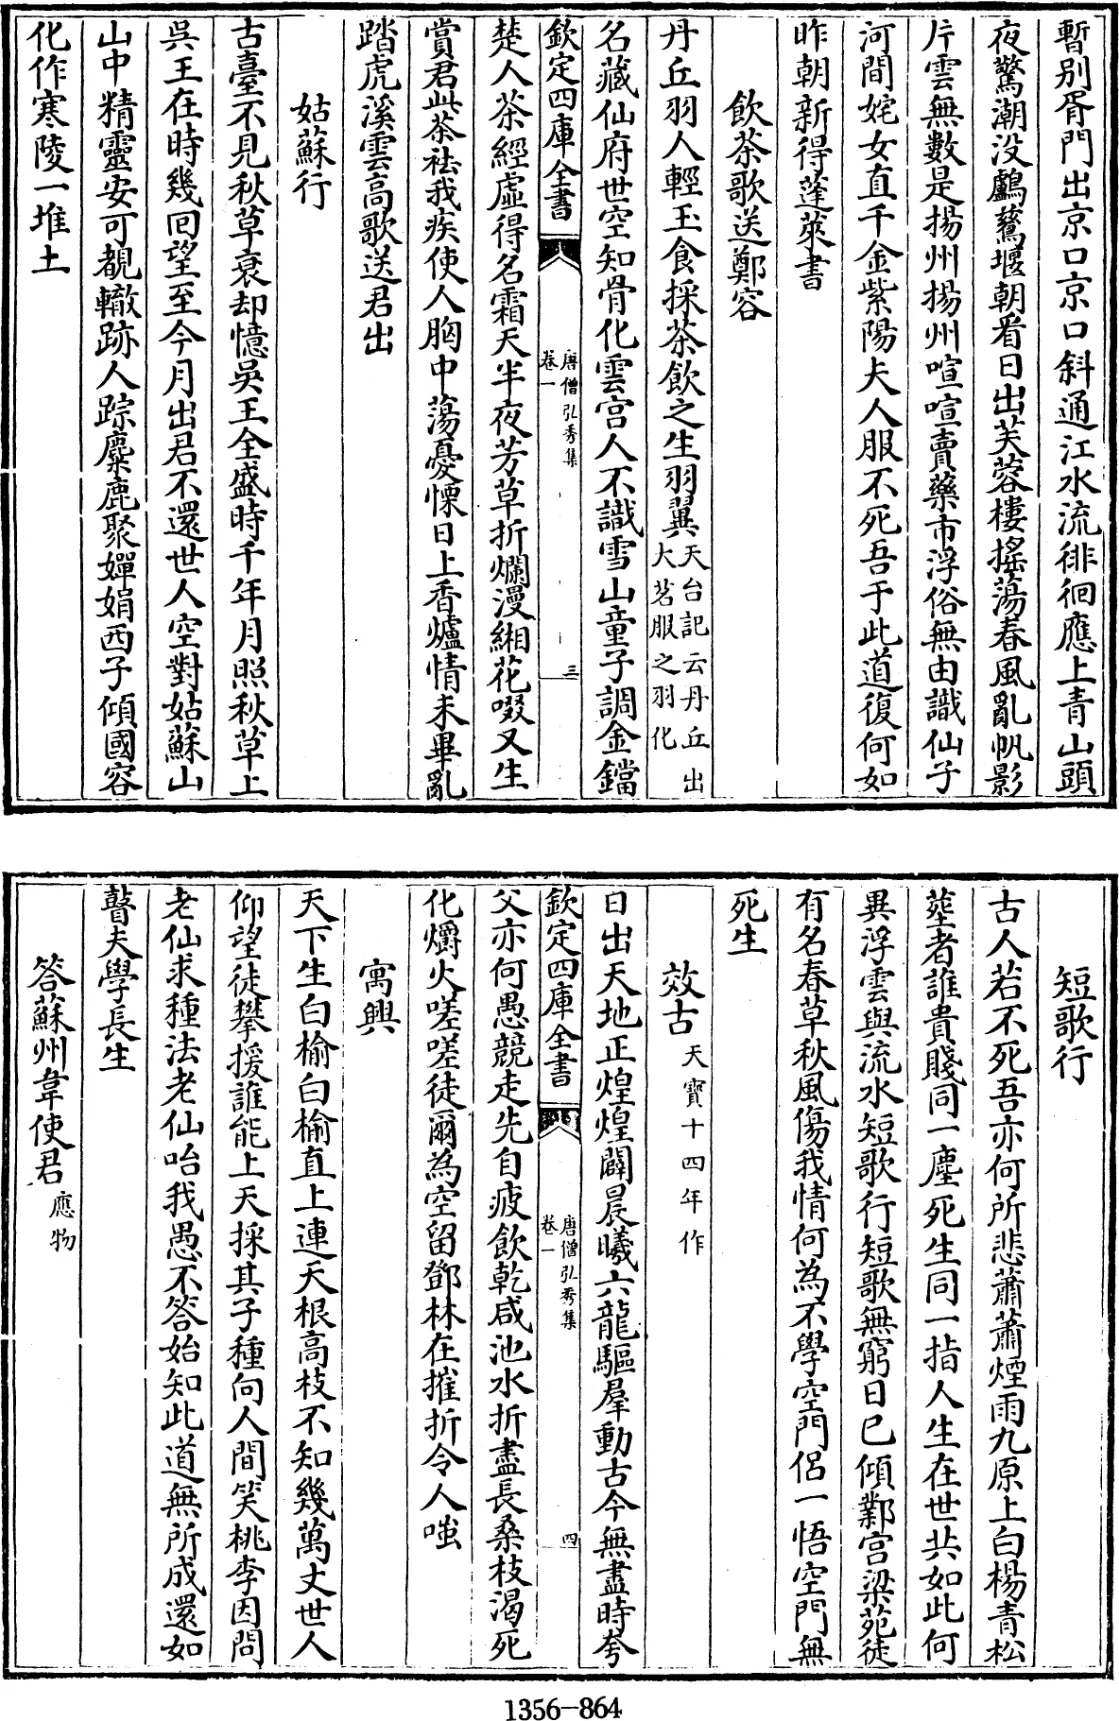 暫别胥門出京口京口斜通江水流徘徊應上青山頭
夜驚潮没鸕鶿堰朝看日出芙蓉樓搖蕩春風亂帆影
片雲無數是揚州揚州喧喧賣藥市浮俗無由識仙子
河間姹女直千金紫陽夫人服不死吾于此道復何如
昨朝新得蓬萊書
飲茶歌送鄭容
丹丘羽人輕玉食採茶飲之生羽翼天台記云丹丘出大茗服之羽化
名藏仙府世空知骨化雲宫人不識雪山童子調金鐺
欽定四庫全書
唐僧弘秀集
卷一
三
楚人茶經虛得名霜天半夜芳草折爛漫緗花啜又生
賞君此茶祛我疾使人胸中蕩憂慄日上香爐情未畢亂
踏虎溪雲高歌送君出
姑蘇行
古臺不見秋草衰却憶吳王全盛時千年月照秋草上
吳王在時幾回望至今月出君不還世人空對姑蘇山
山中精靈安可覩轍跡人踪麋鹿聚嬋娟西子傾國容
化作寒陵一堆土
短歌行
古人若不死吾亦何所悲蕭蕭煙雨九原上白楊青松
塟者誰貴賤同一塵死生同一指人生在世共如此何
異浮雲與流水短歌行短歌無窮日已傾鄴宫梁苑徒
有名春草秋風傷我情何為不學空門侶一悟空門無
死生
效古天寶十四年作
日出天地正煌煌闢晨曦六龍驅羣動古今無盡時夸
欽定四庫全書
唐僧弘秀集
卷一
四
父亦何愚競走先自疲飲乾咸池水折盡長桑枝渴死
化爝火嗟嗟徒爾為空留鄧林在摧折令人嗤
寓興
天下生白榆白榆直上連天根高枝不知幾萬丈世人
仰望徒攀援誰能上天採其子種向人間笑桃李因問
老仙求種法老仙咍我愚不答始知此道無所成還如
瞽夫學長生
答蘇州韋使君應物
1356-864